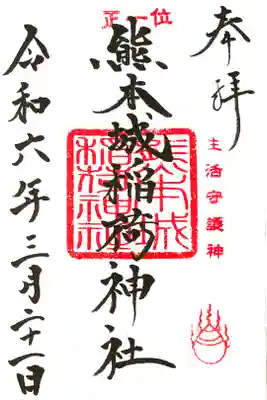 奉拝
主活守護神
正一位
熊本城稲荷神社
熊本城稲荷神社
令和六年三月二十一日